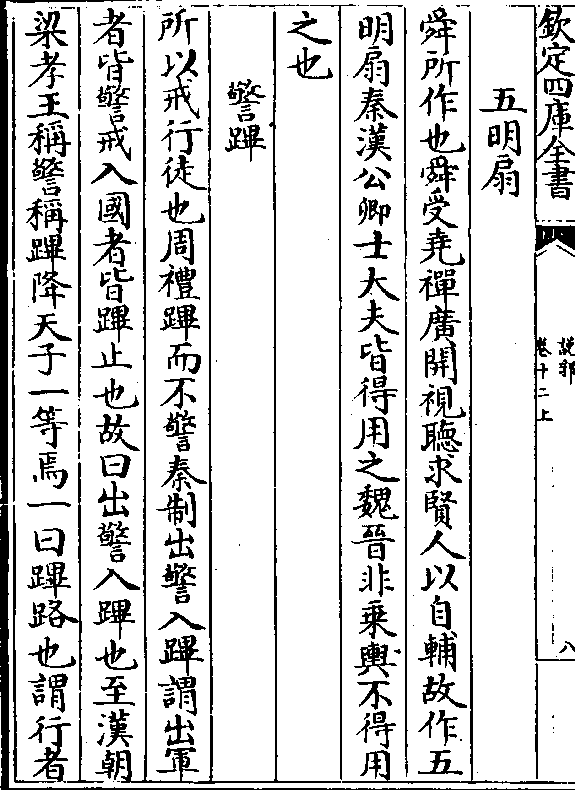 欽定四庫全書
說郛
卷十二上
八
五明扇
舜所作也舜受堯禪廣開視聽求賢人以自輔故作五
明扇秦漢公卿士大夫皆得用之魏晉非乘輿不得用
之也
警蹕
所以戒行徒也周禮蹕而不警秦制出警入蹕謂出軍
者皆警戒入國者皆蹕止也故曰出警入蹕也至漢朝
梁孝王稱警稱蹕降天子一等焉一曰蹕路也謂行者